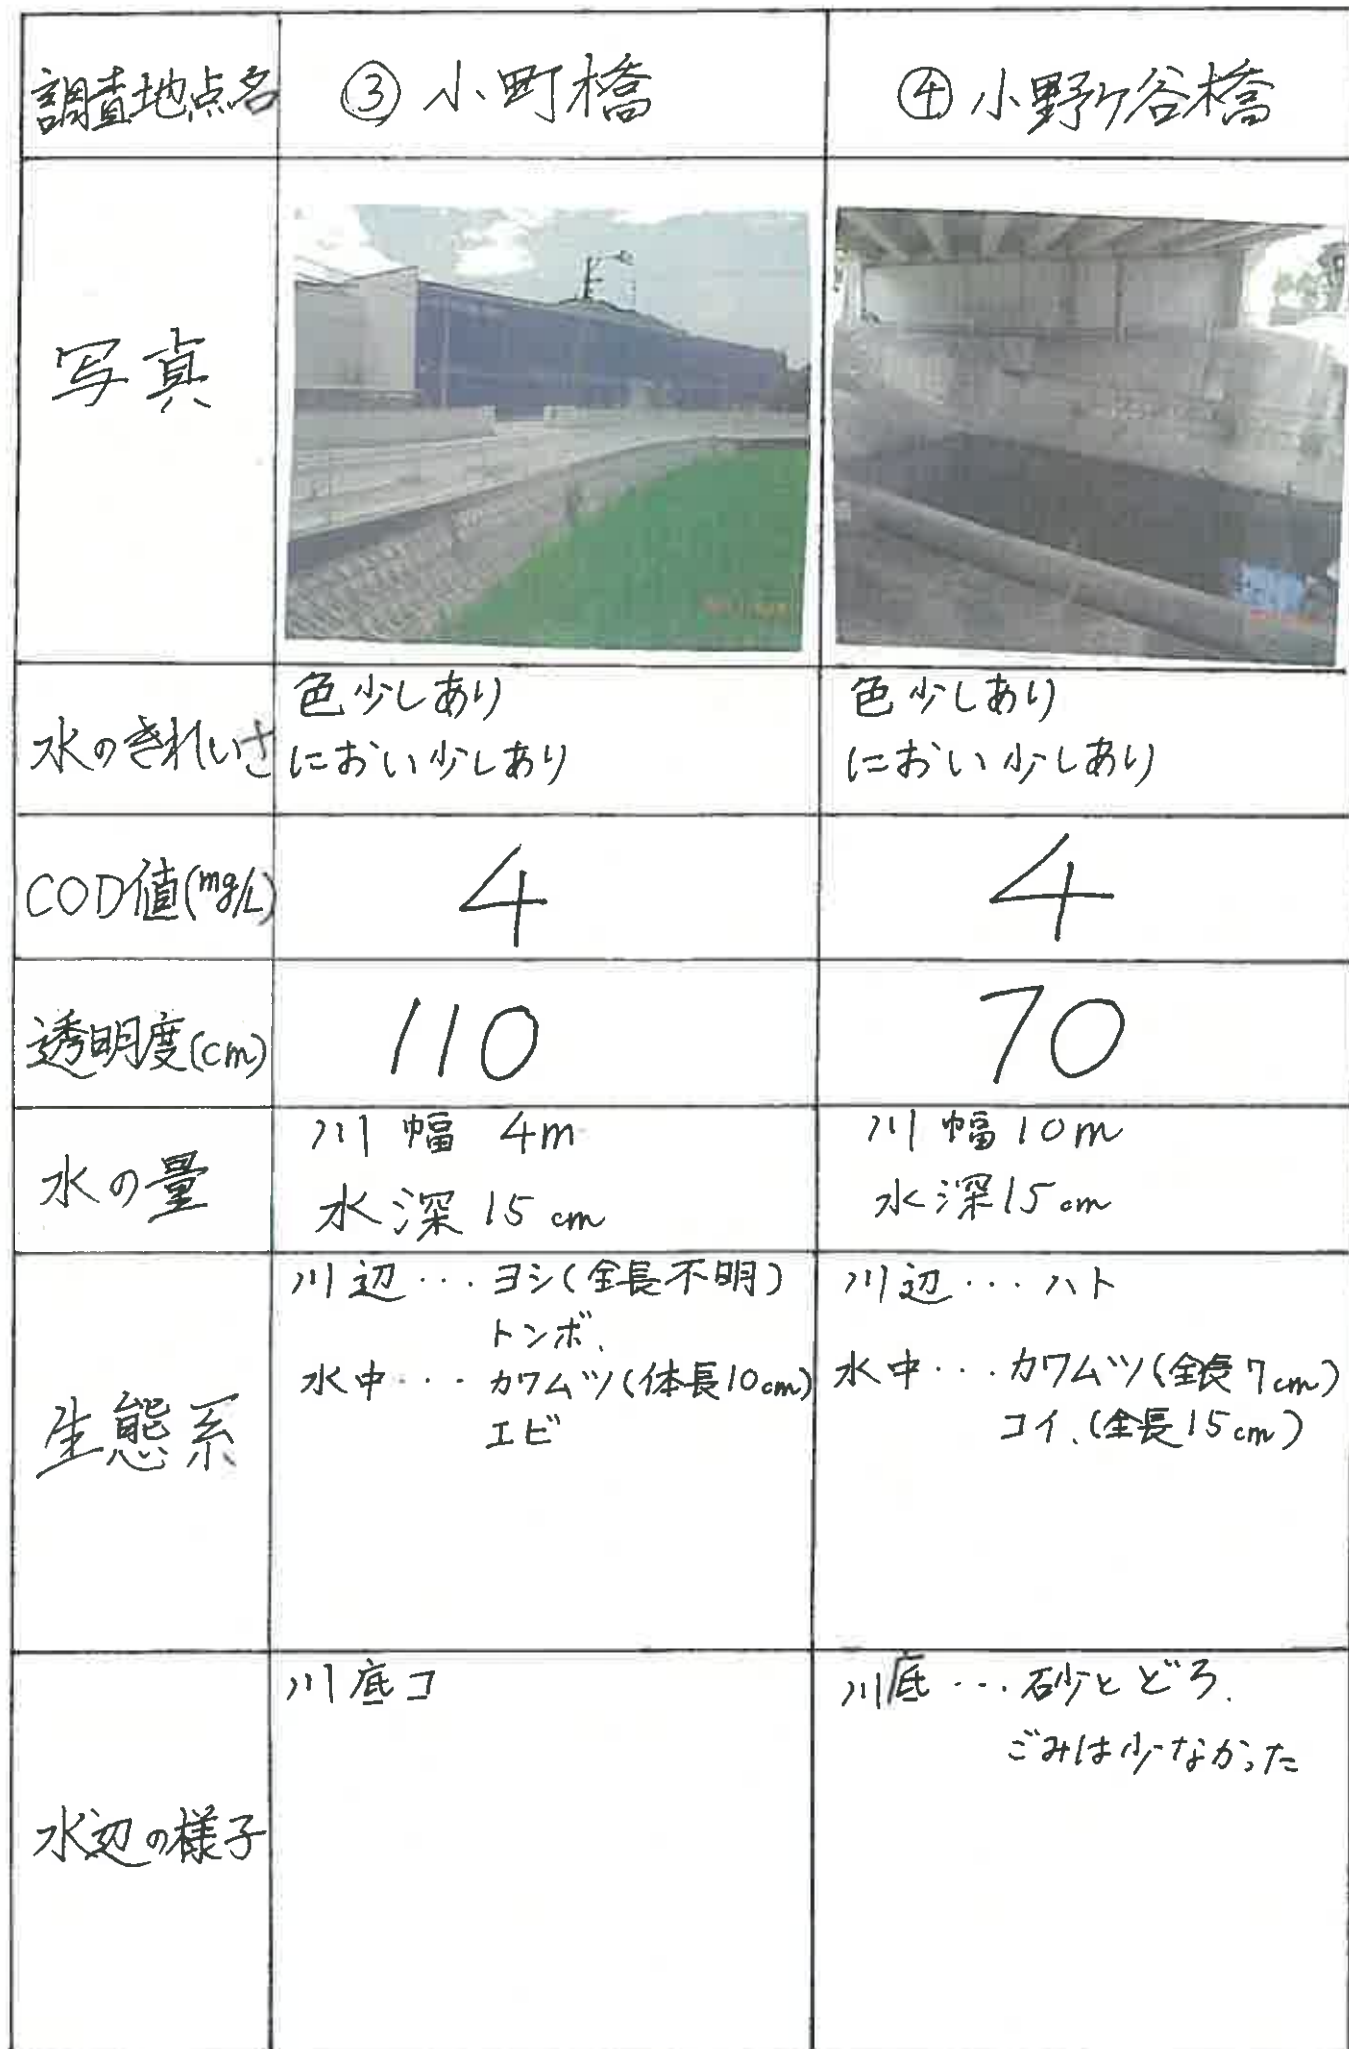 調査地点名 ③ 小町橋 ④ 小野ケ谷橋
写真
水のきれいさ
色少しあり
におい少しあり
色少しあり
におい少しあり
COD値(mg/L) 4 4
透明度(cm) 110 70
水の量
川幅 4m
水深 15cm
川幅 10m
水深 15cm
生態系
川辺・・・ヨシ(全長不明)
トンボ、
水中・・・カワムツ(体長10cm)
エビ
川辺・・・ハト
水中・・・カワムツ(全長7cm)
コイ、(全長15cm)
水辺の様子
川底コ
川底・・・砂とどろ、
ごみは少なかった